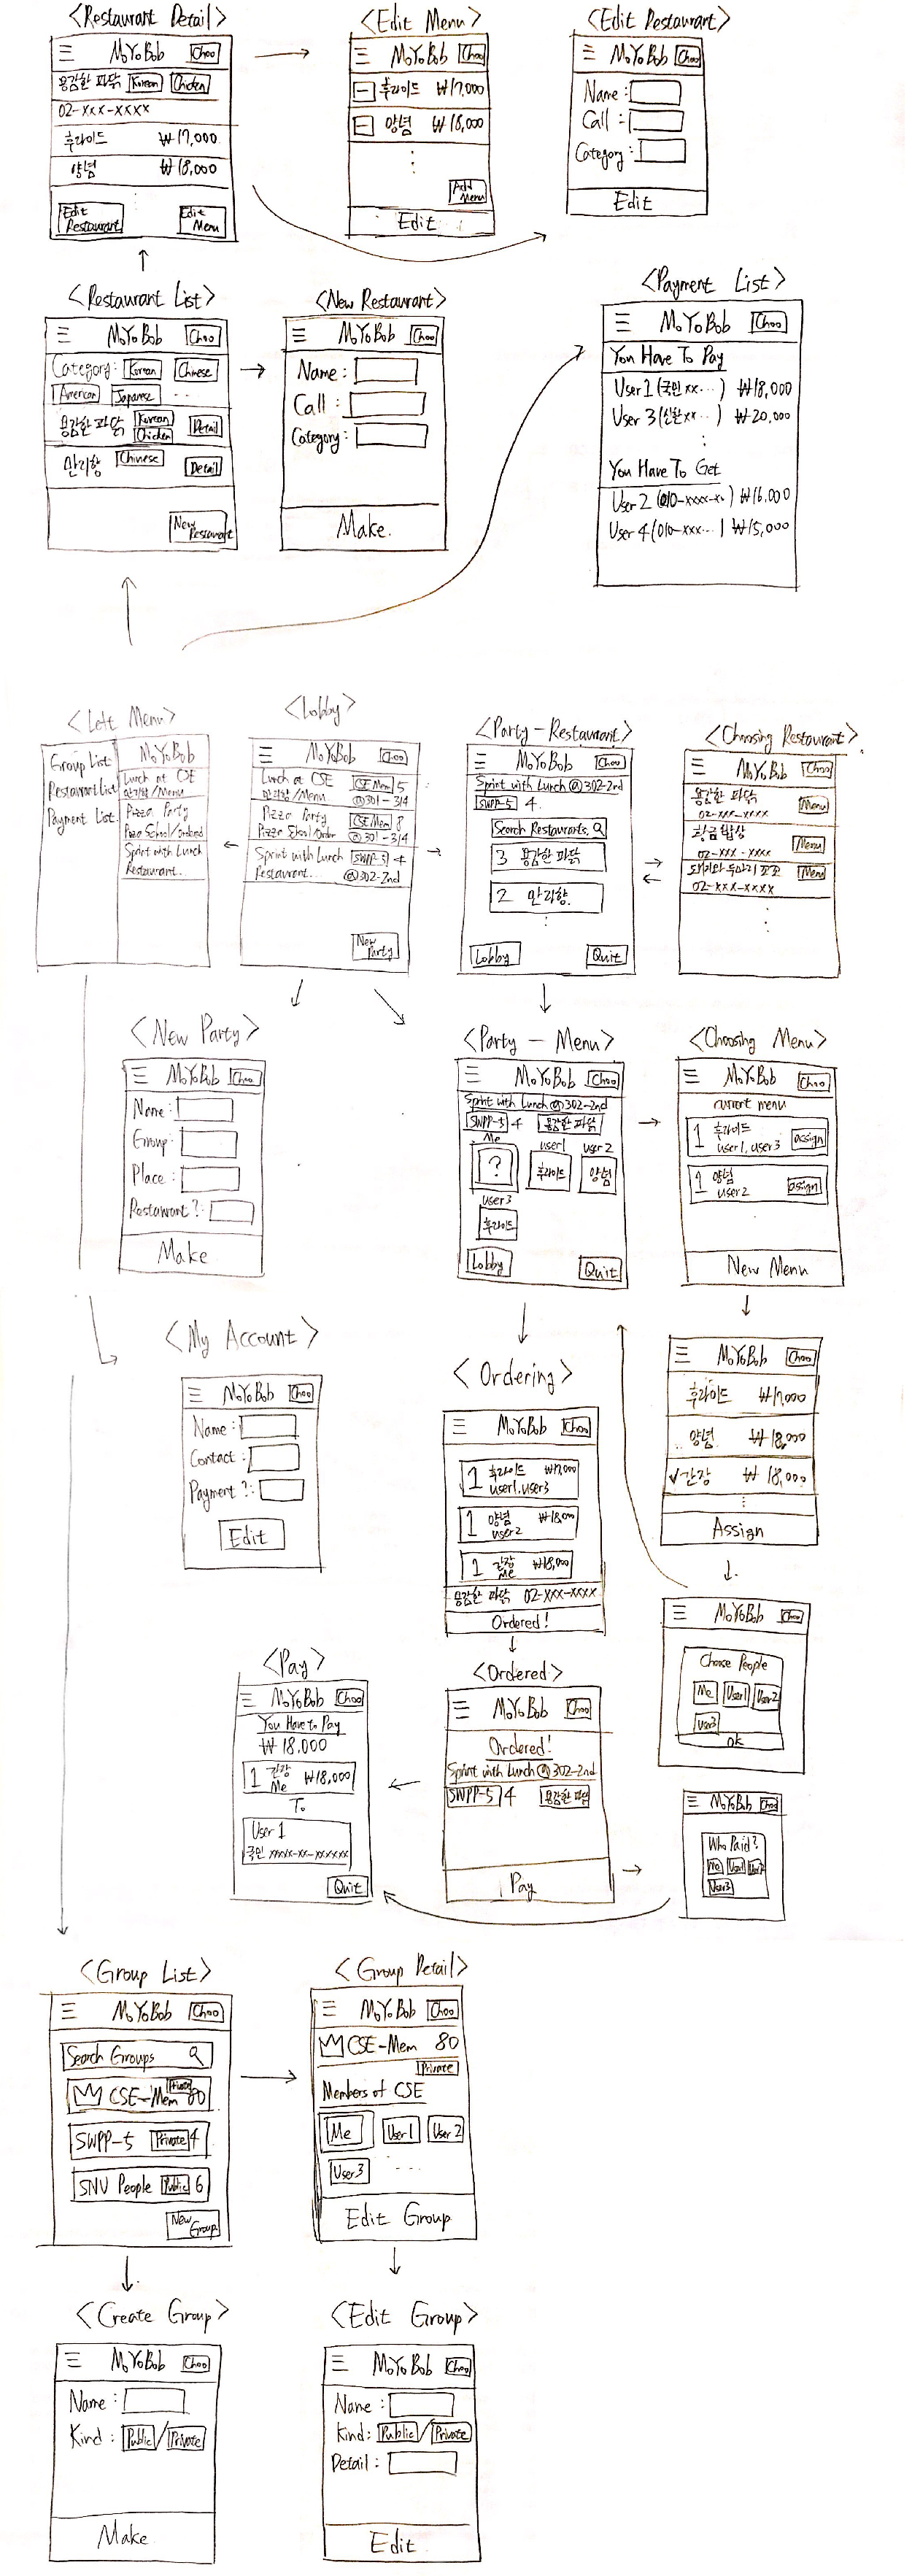 <Restaurant Detail>
☰ MoYoBob Choo
용감한 파닭 Korean Chicken
02-xxx-xxxx
후라이드 ₩17,000
양념 ₩18,000
⋮
Edit Restaurant
Edit Menu
<Edit Menu>
☰ MoYoBob Choo
후라이드 ₩17,000
양념 ₩18,000
⋮
Add Menu
Edit
<Edit Restaurant>
☰ MoYoBob Choo
Name :
Call :
Category :
Edit
<Restaurant List>
☰ MoYoBob Choo
Category : Korean Chinese
American Japanese ...
용감한 파닭 Korean Chicken Detail
만리향 Chinese Detail
New Restaurant
<New Restaurant>
☰ MoYoBob Choo
Name :
Call :
Category :
Make
<Payment List>
☰ MoYoBob Choo
You Have To Pay
User 1 (국민 xx...) ₩18,000
User 3 (신한 xx...) ₩20,000
⋮
You Have To Get
User 2 (010-xxxx-x.) ₩16,000
User 4 (010-xxx...) ₩15,000
<Left Menu>
Group List
Restaurant List
Payment List
MoYoBob
Lunch at CSE
만리향/Menu
Pizza Party
Pizza School/Ordered
Sprint with Lunch
Restaurant...
<Lobby>
☰ MoYoBob Choo
Lunch at CSE CSE Mem 5
만리향/Menu @301-314
Pizza Party CSE Mem 8
Pizza School/Order @301-314
Sprint with Lunch SWPP-5 4
Restaurant... @302-2nd
New Party
<Party-Restaurant>
☰ MoYoBob Choo
Sprint with Lunch @302-2nd
SWPP-5 4
Search Restaurants
3 용감한 파닭
2 만리향
⋮
Lobby
Quit
<Choosing Restaurant>
☰ MoYoBob Choo
용감한 파닭 Menu
02-xxx-xxxx
황금밥상 Menu
02-xxx-xxxx
돼지와 두마리 Menu
02-xxx-xxxx
⋮
<New Party>
☰ MoYoBob Choo
Name :
Group :
Place :
Restaurant ? :
Make
<Party - Menu>
☰ MoYoBob Choo
Sprint with Lunch @302-2nd
SWPP-5 4 용감한 파닭
Me user1 user2
? 후라이드 양념
user3
후라이드
Lobby
Quit
<Choosing Menu>
☰ MoYoBob Choo
current menu
1 후라이드 assign
user1, user3
1 양념 assign
user2
New Menu
<My Account>
☰ MoYoBob Choo
Name :
Contact :
Payment ? :
Edit
☰ MoYoBob Choo
후라이드 ₩17,000
양념 ₩18,000
✓간장 ₩18,000
⋮
Assign
<Ordering>
☰ MoYoBob Choo
1 후라이드 ₩17,000
user1, user3
1 양념 ₩18,000
user2
1 간장 ₩18,000
Me
용감한 파닭 02-xxx-xxxx
Ordered!
☰ MoYoBob Choo
Choose People
Me User1 User2
User3
OK
<Pay>
☰ MoYoBob Choo
You Have to Pay
₩18,000
1 간장 ₩18,000
Me
To
User 1
국민 xxxx-xx-xxxxxx
Quit
<Ordered>
☰ MoYoBob Choo
Ordered!
Sprint with Lunch @302-2nd
SWPP-5 4 용감한 파닭
Pay
☰ MoYoBob Choo
Who Paid?
Me User1 User2
User3
<Group List>
☰ MoYoBob Choo
Search Groups
CSE-Mem Private 80
SWPP-5 Private 4
SNU People Public 6
New Group
<Group Detail>
☰ MoYoBob Choo
CSE-Mem 80
Private
Members of CSE
Me User1 User2
User3 ....
Edit Group
<Create Group>
☰ MoYoBob Choo
Name :
Kind : Public/Private
Make
<Edit Group>
☰ MoYoBob Choo
Name :
Kind : Public/Private
Detail :
Edit